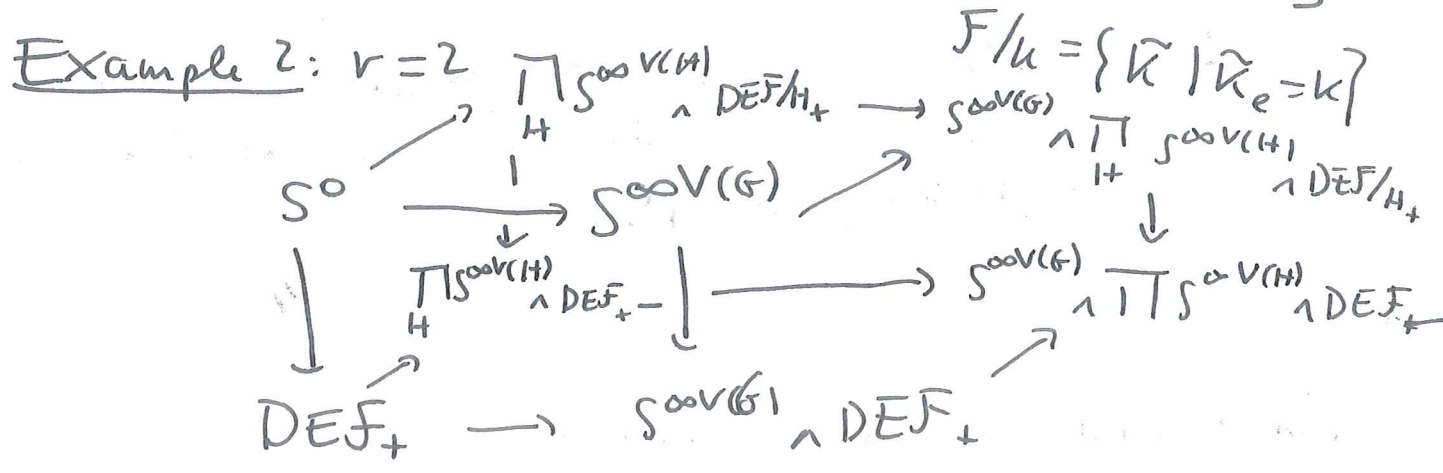 Example 2: r=2
∏_H S^{∞V(H)} ∧ DEF/H_+ → S^{∞V(G)} ∧ ∏_H S^{∞V(H)} ∧ DEF/H_+
F/K = {K̃ | K̃_e = K}
S^0 → S^{∞V(G)}
∏_H S^{∞V(H)} ∧ DEF_+ → S^{∞V(G)} ∧ ∏ S^{∞V(H)} ∧ DEF_+
DEF_+ → S^{∞V(G)} ∧ DEF_+